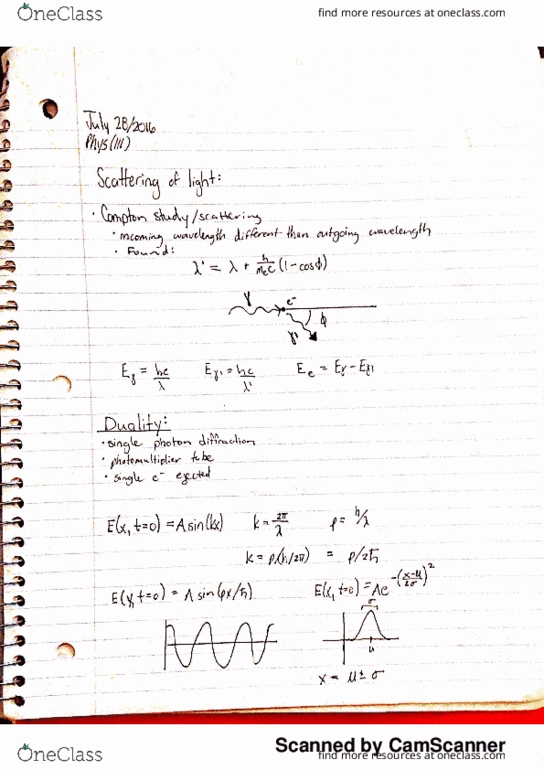 OneClass find more resources at oneclass.com
July 28/2016
Phys(111)
Scattering of light:
· Compton study/scattering
· incoming wavelength different than outgoing wavelength
· Found:
λ' = λ + h/mₑc (1-cosϕ)
γ e⁻
ϕ
γ'
Eγ = hc/λ Eγ' = hc/λ' Ee = Eγ - Eγ'
Duality:
· single photon diffraction
· photomultiplier tube
· single e⁻ ejected
E(x, t=0) = A sin(kx) k = 2π/λ p = h/λ
k = p/(h/2π) = p/ħ
E(x, t=0) = A sin(px/ħ) E(x, t=0) = Ae^-((x-μ)/2σ)²
σ
μ
x = μ ± σ
Scanned by CamScanner
OneClass find more resources at oneclass.com